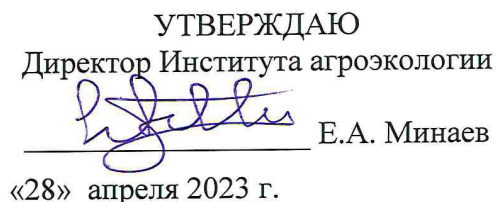 УТВЕРЖДАЮ
Директор Института агроэкологии
Е.А. Минаев
«28» апреля 2023 г.